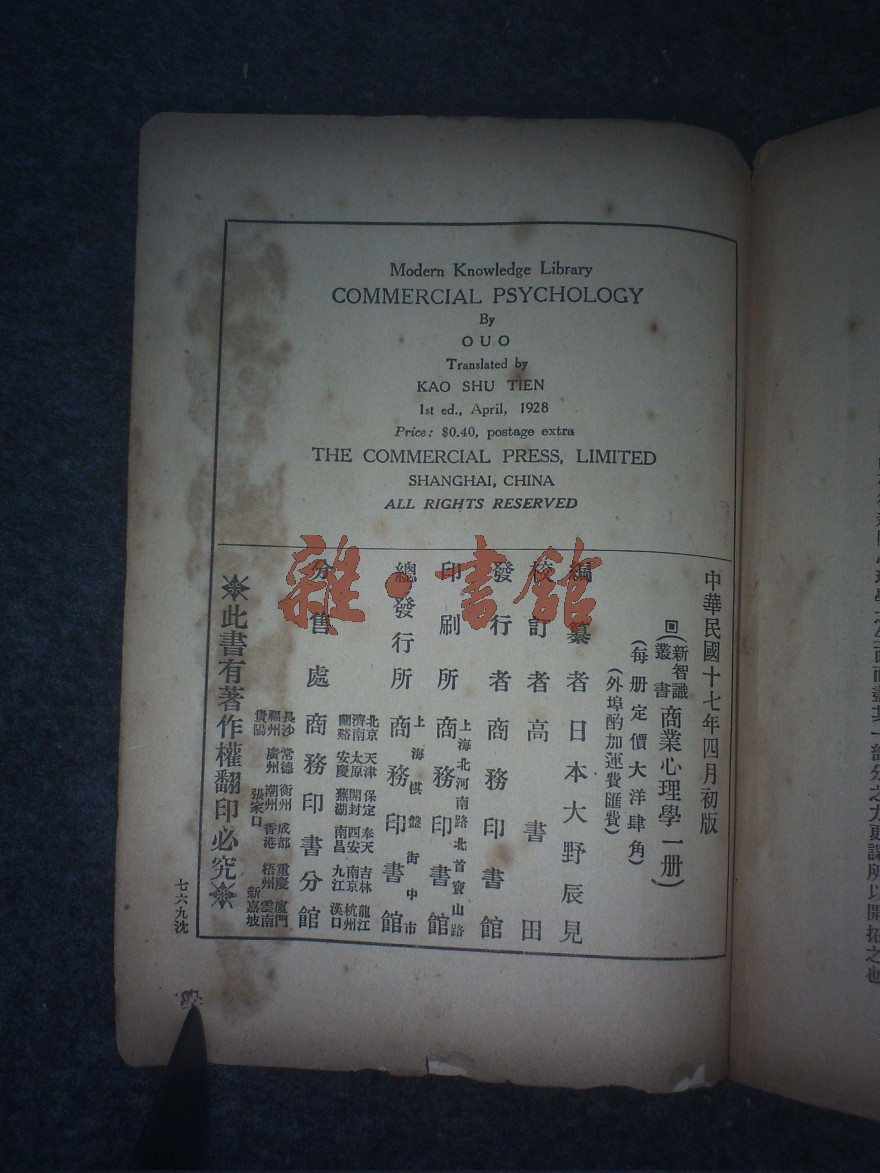 Modern Knowledge Library
COMMERCIAL PSYCHOLOGY
By
OUO
Translated by
KAO SHU TIEN
1st ed., April, 1928
Price: $0.40, postage extra
THE COMMERCIAL PRESS, LIMITED
SHANGHAI, CHINA
ALL RIGHTS RESERVED
中華民國十七年四月初版
(新智識叢書商業心理學一册)
(每册定價大洋肆角)
(外埠酌加運費匯費)
編纂者日本大野辰見
校訂者高書田
發行者商務印書館
印刷所商務印書館
上海北河南路北首寶山路
總發行所商務印書館
上海棋盤街中市
分售處商務印書分館
北京 天津 保定 奉天 吉林 龍江
濟南 太原 開封 西安 南京 杭州
蘭谿 安慶 蕪湖 南昌 九江 漢口
長沙 常德 衡州 成都 重慶 廈門
福州 廣州 潮州 香港 梧州 雲南
貴陽 張家口 新嘉坡
此書有著作權翻印必究
七六九沈
雜·書館
學之
而盡其一部分之力更謀所以開拓之也